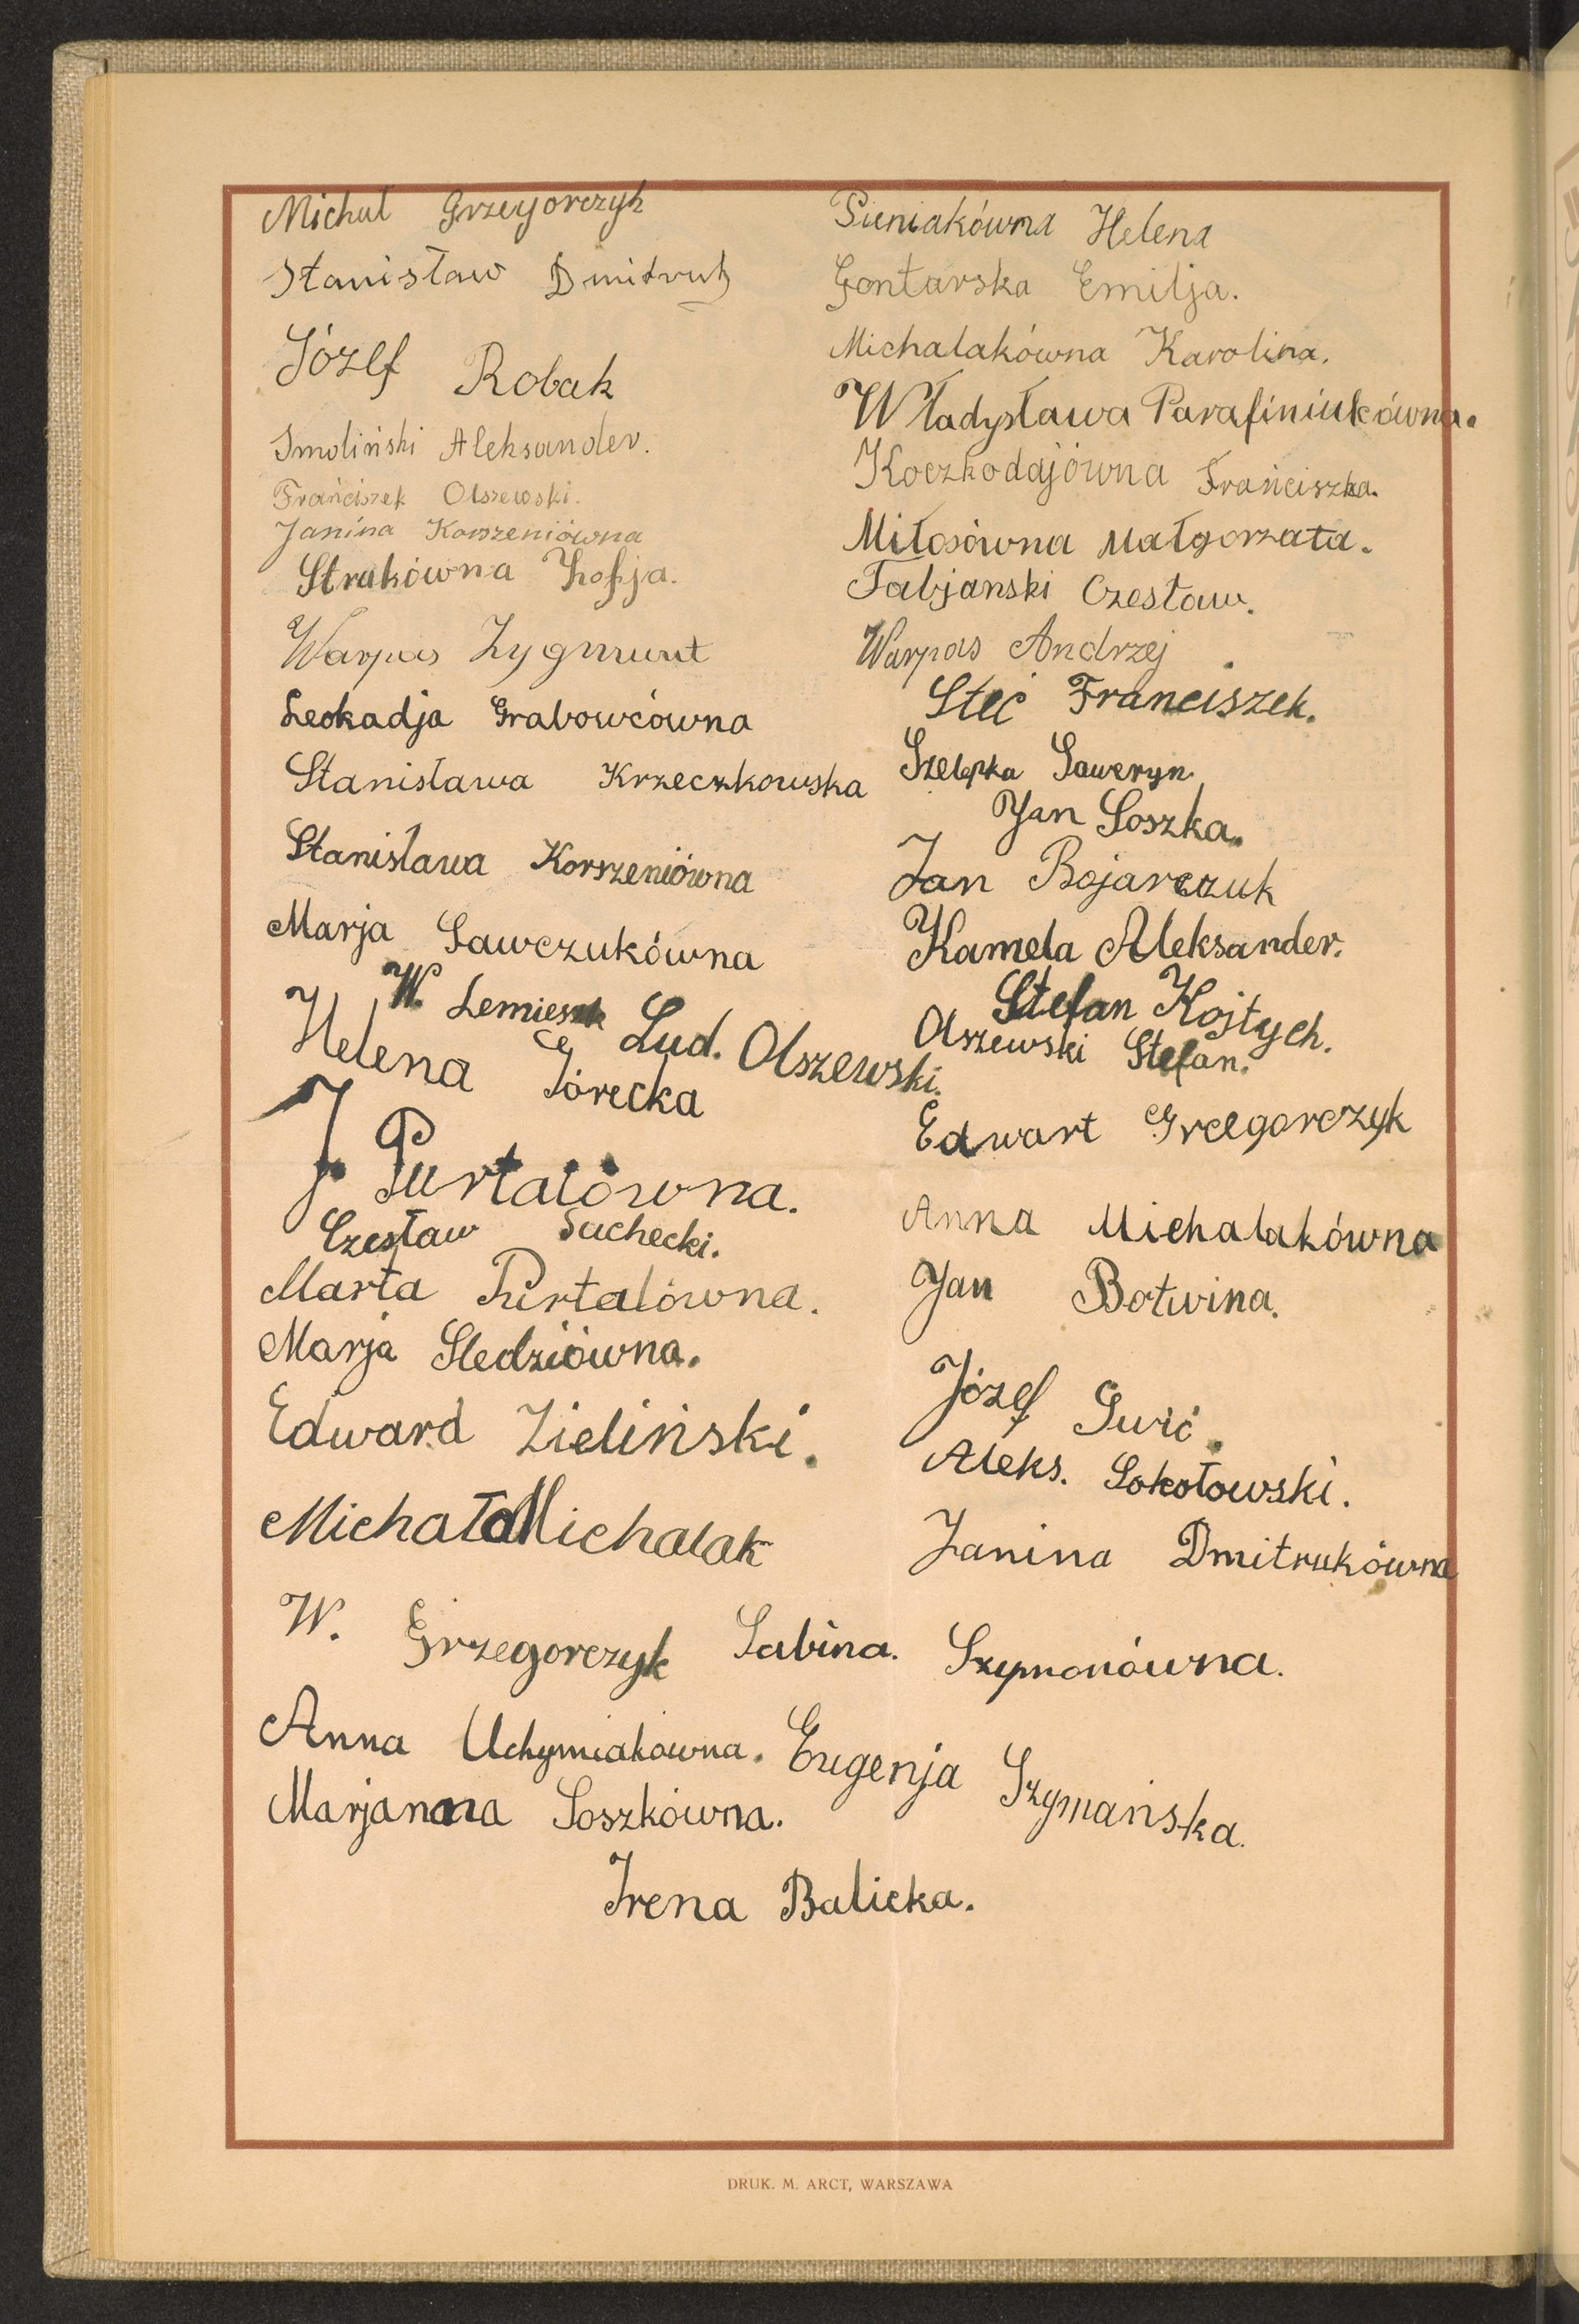 Michał Grzegorczyk
Stanisław Dmitruk
Józef Robak
Smoliński Aleksander.
Frańciszek Olszewski.
Janina Korszeniówna
Strukówna Zofja.
Warpas Zygmunt
Leokadja Grabowcówna
Stanisława Krzeczkowska
Stanisława Korszeniówna
Marja Sawczukówna
W. Lemieszek
Lud. Olszewski.
Helena Górecka
J. Purtalówna.
Czesław Suchecki.
Marta Purtalówna.
Marja Sledziówna.
Edward Zieliński.
Michał Michalak
W. Grzegorczyk
Anna Uchymiakówna.
Marjanna Soszkówna.
Pieniakówna Helena
Gontarska Emilja.
Michalakówna Karolina.
Władysława Parafiniukówna.
Koczkodajówna Frańciszka.
Miłosówna Małgorzata.
Fabjanski Czesław.
Warpas Andrzej
Steć Franciszek.
Szelepka Saweryn.
Jan Soszka.
Jan Bojarczuk
Kamela Aleksander.
Stefan Kojtych.
Olszewski Stefan.
Edwart Grzegorczyk
Anna Michalakówna
Jan Botwina.
Józef Guić.
Aleks. Sokołowski.
Janina Dmitrukówna
Sabina Szymonówna.
Eugenja Szymańska.
Irena Balicka.
DRUK. M. ARCT, WARSZAWA